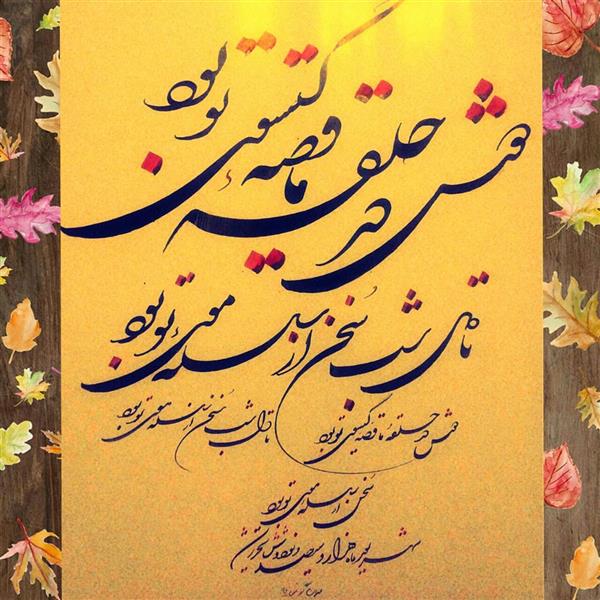 دوش در حلقهٔ ما قصهٔ گیسوی تو بود
تا دل شب سخن از سلسلهٔ موی تو بود
دوش در حلقهٔ ما قصه گیسوی تو بود تا دل شب سخن از سلسله موی تو بود
سخن از سلسله موی تو بود
شهریور ماه هزار و سیصد و نود و شش